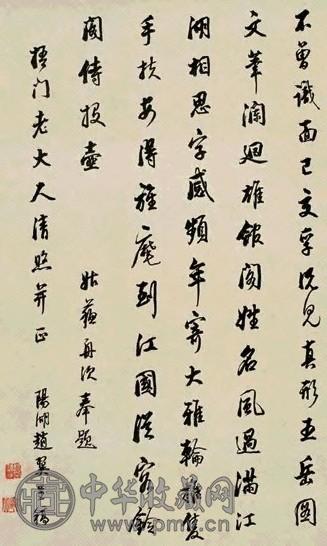 不曾識面已交孚況見真形五岳圖
文筆瀾迴雄館閣姓名風過滿江
湖相思字感頻年寄大雅輪推隻
手扶安得旌麾到江國從容鈴
閣侍投壺
姑蘇舟次奉題
梧門老大人清照并正
陽湖趙翼
中华收藏网